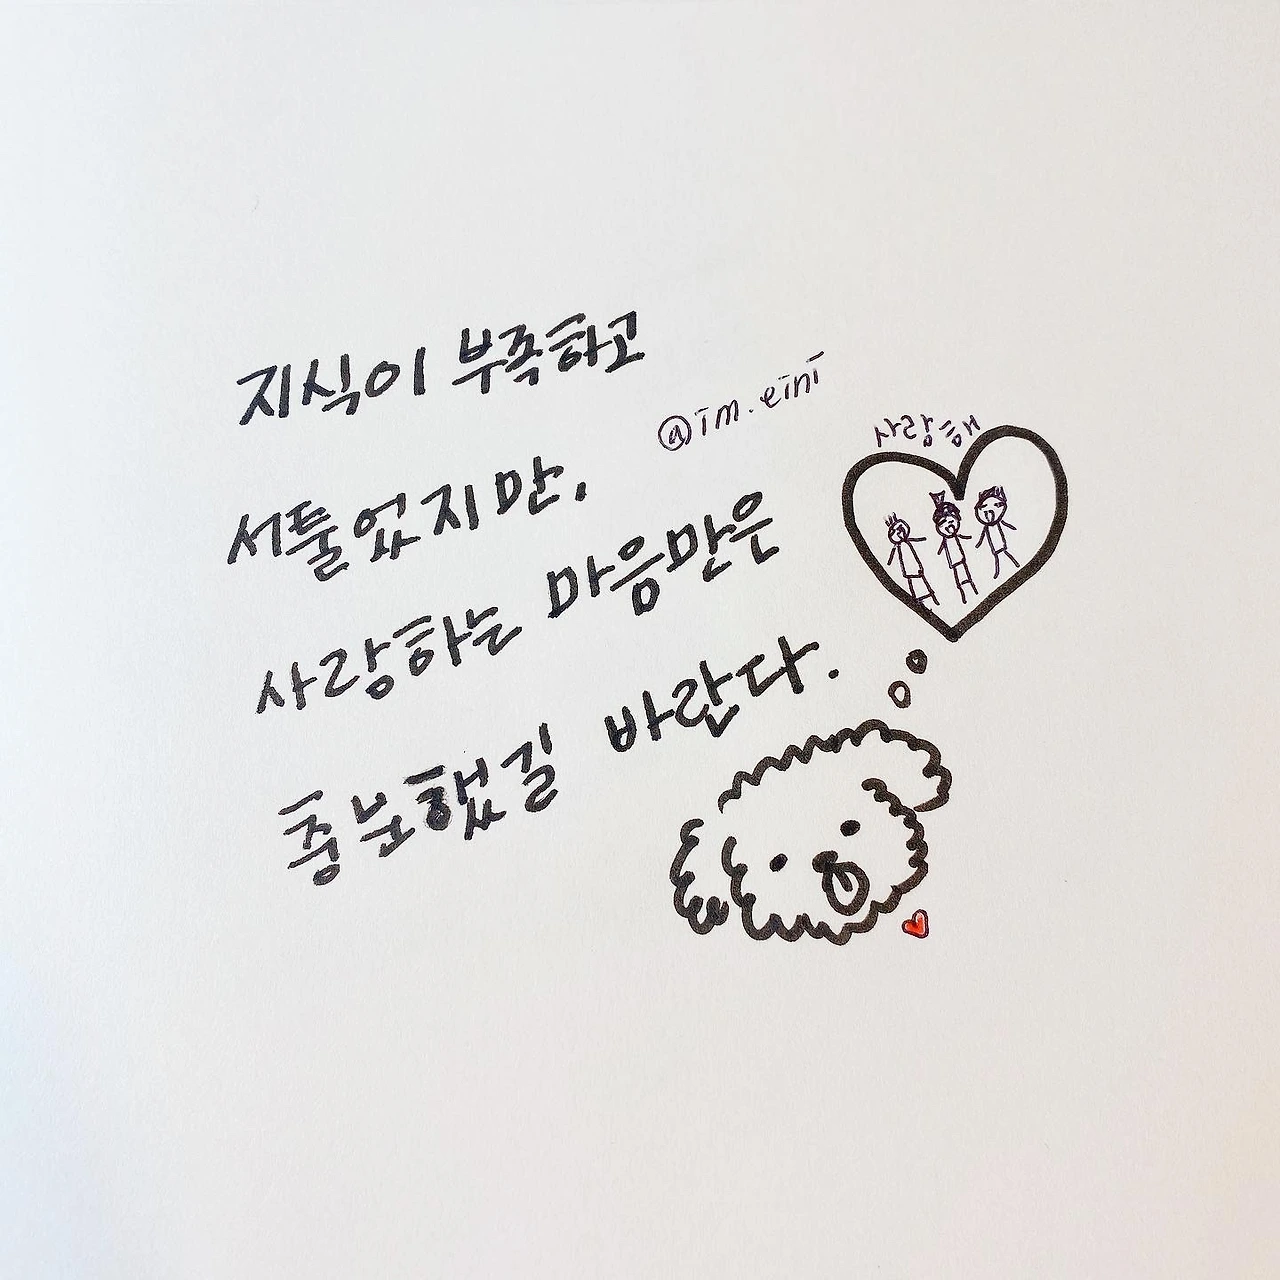 지식이 부족하고
@im.eini
서툴었지만,
사랑하는 마음만은
충분했길 바란다.
사랑해